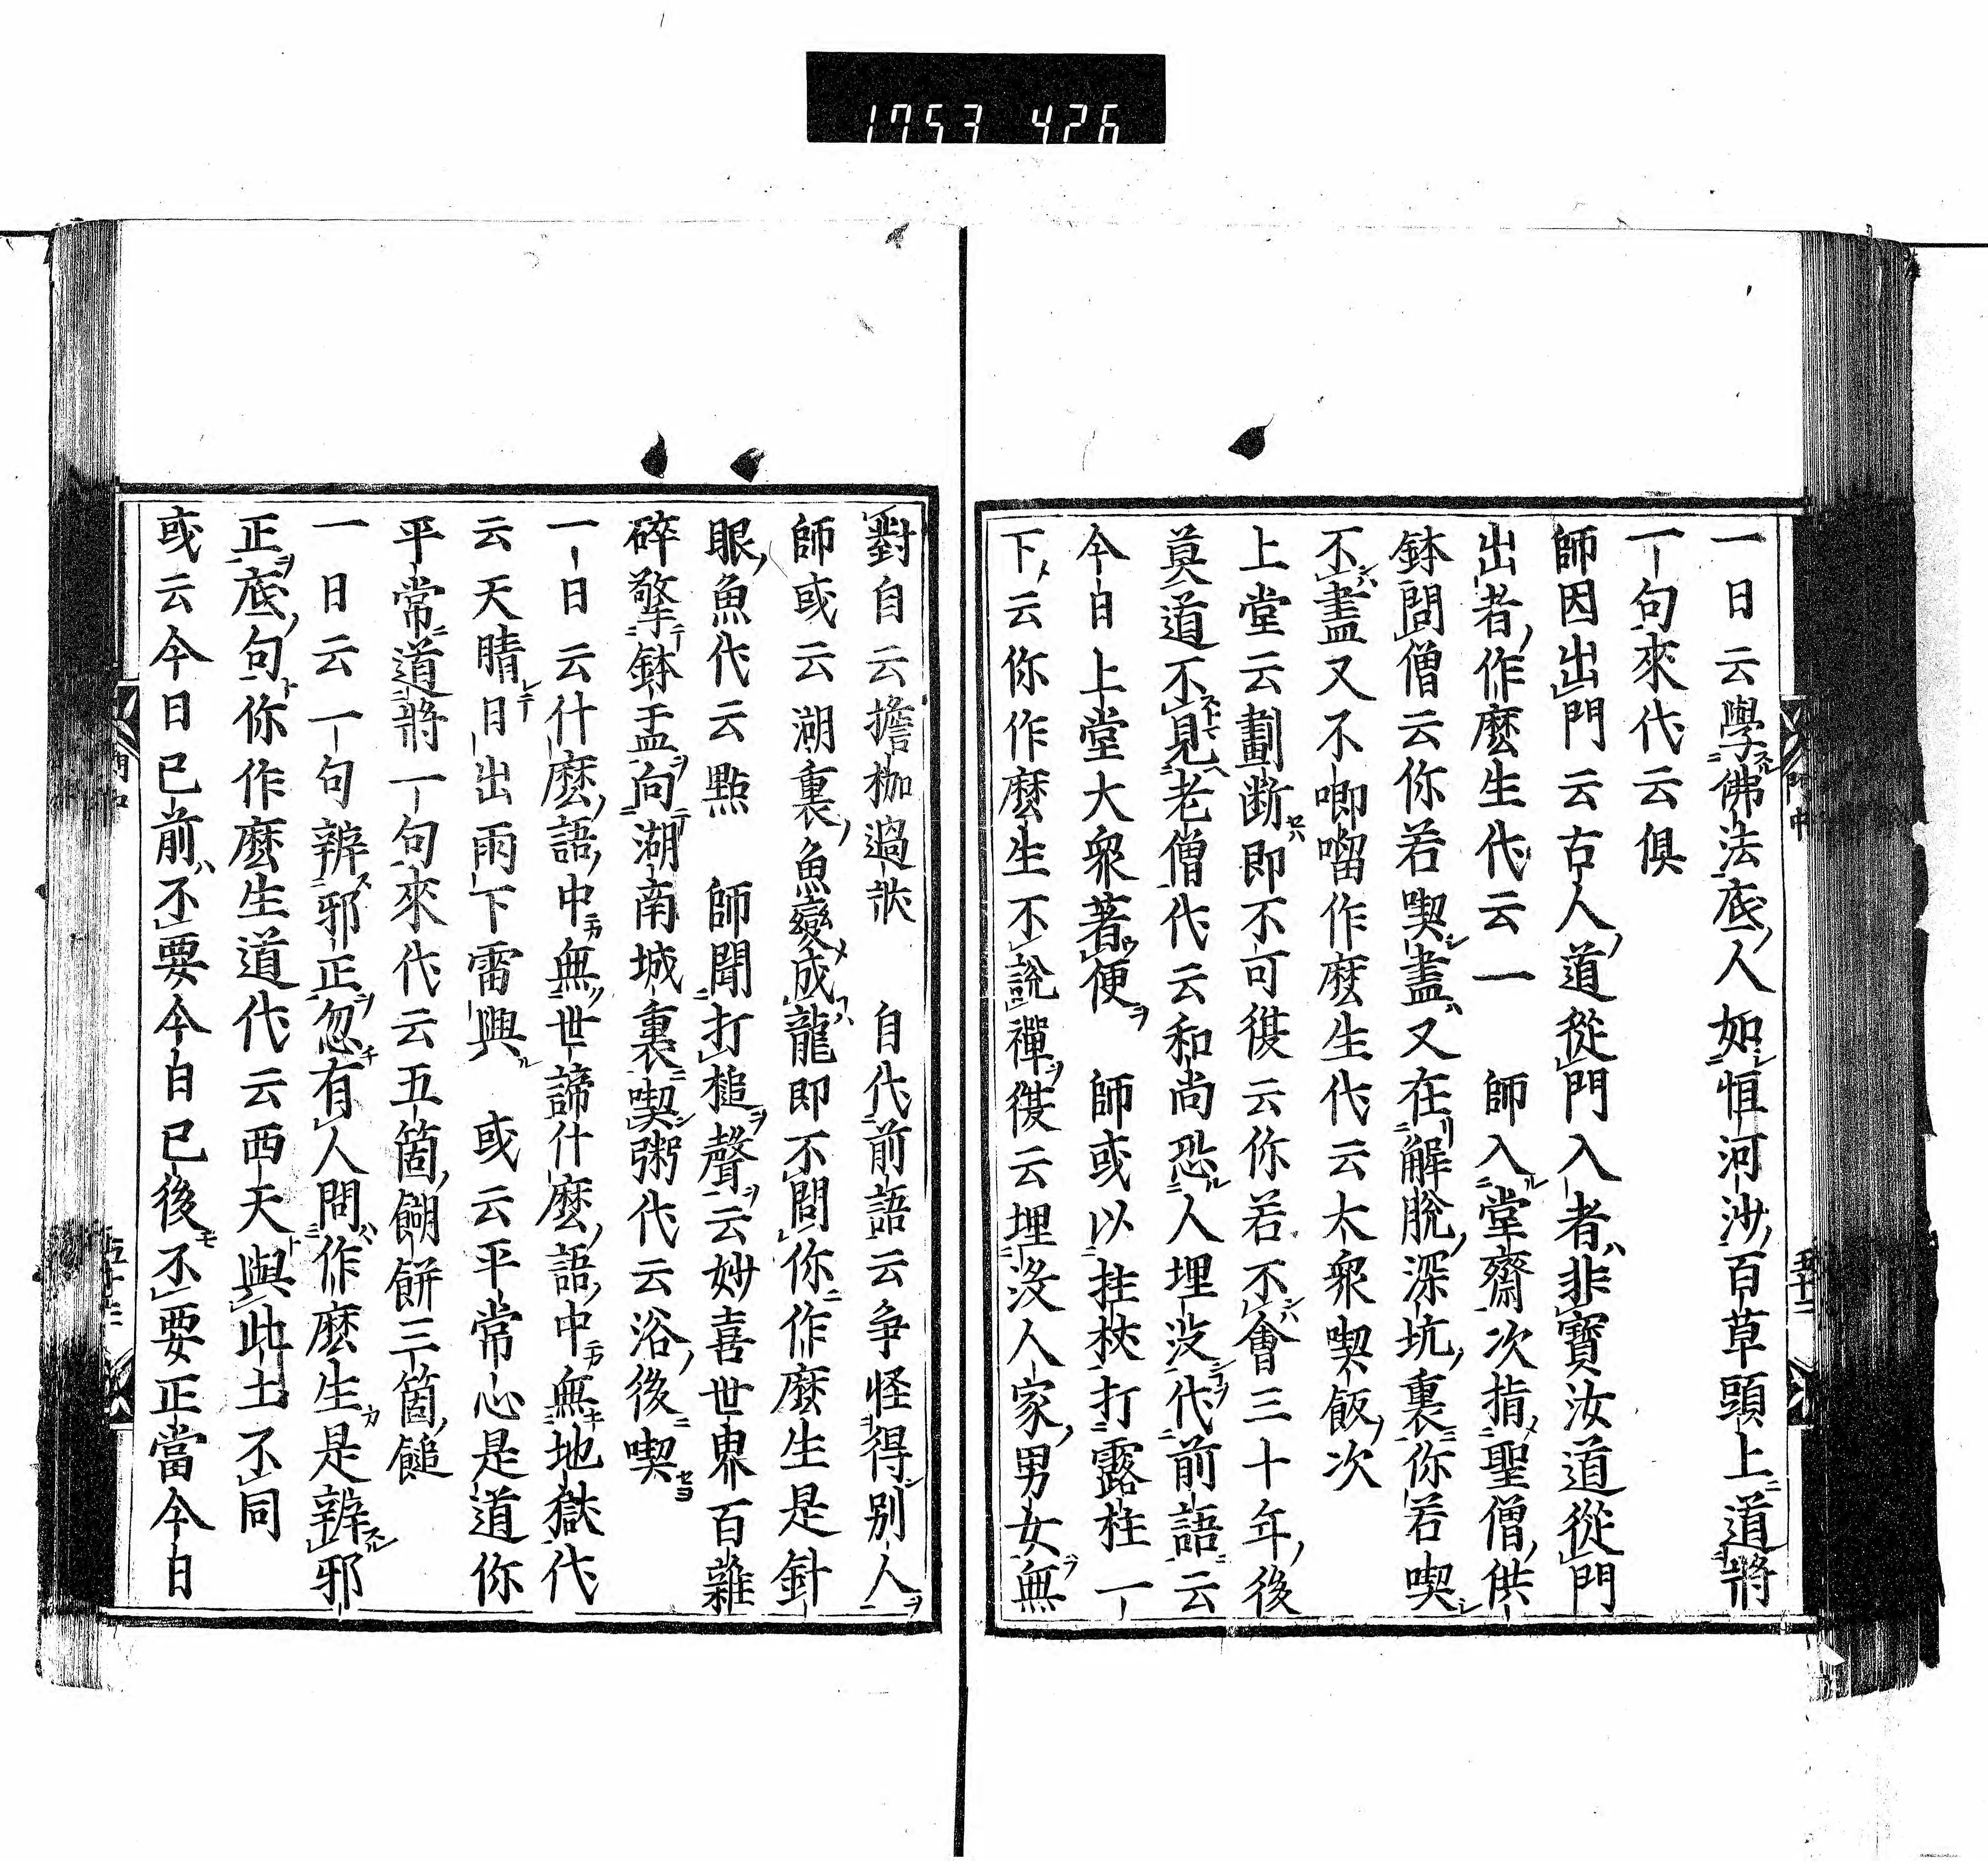 1753 426
一日云學佛法底人如恒河沙百草頭上道將
一句來代云俱
師因出門云古人道從門入者非寶汝道從門
出者作麼生代云一　師入堂齋次指聖僧供
鉢問僧云你若喫盡又在解脫深坑裏你若喫
不盡又不喞㗩作麼生代云大衆喫飯次
上堂云劃斷即不可復云你若不會三十年後
莫道不見老僧代云和尚恐人埋没代前語云
今日上堂大衆著便　師或以拄杖打露柱一
下云你作麼生不說禪復云埋没人家男女無
對自云擔枷過狀　自代前語云爭怪得別人
師或云湖裏魚變成龍即不問你作麼生是針
眼魚代云點　師聞打槌聲云妙喜世界百雜
碎擎鉢盂向湖南城裏喫粥代云浴後喫
一日云什麼語中無世諦什麼語中無地獄代
云天晴日出雨下雷興　或云平常心是道你
平常道將一句來代云五箇餬餅三箇䭔
一日云一句辨邪正忽有人問作麼生是辨邪
正底句你作麼生道代云西天與此土不同
或云今日已前不要今日已後不要正當今日